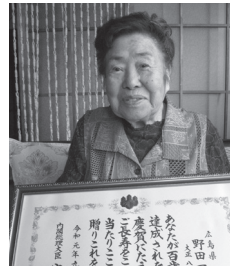 広島県
野田
大正八
あなたが百
達成された
慶賀にたえ
ご長寿をこ
当たりここ
贈りこれを
令和元年九
内閣総理大臣